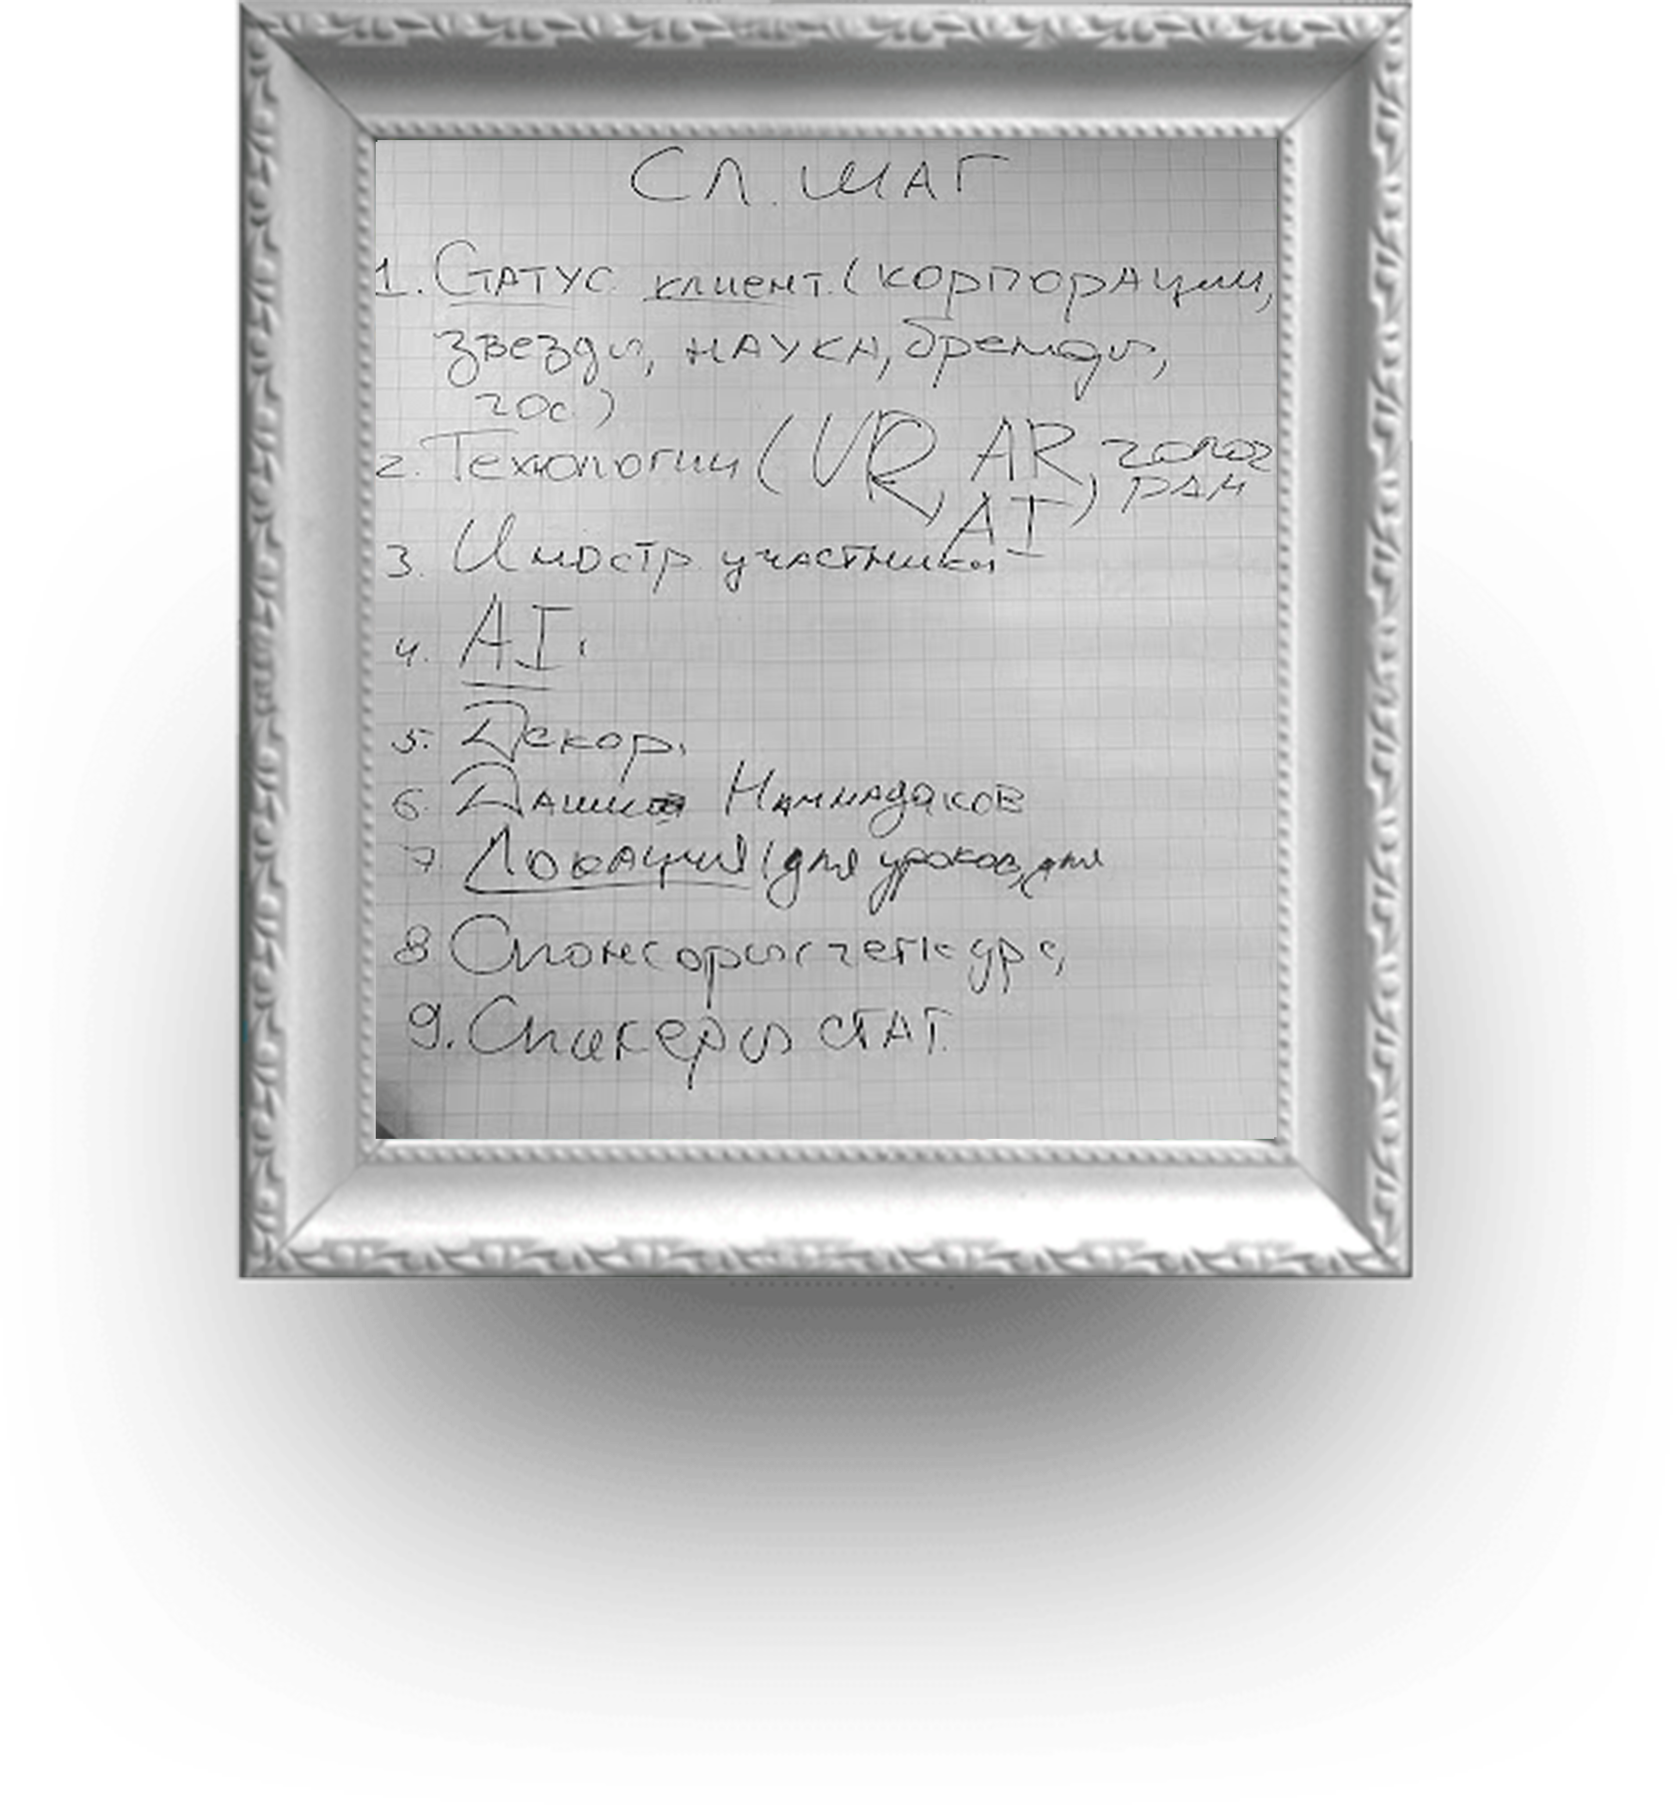 СЛ. ШАГ
1. Статус клиент. (корпорации,
звезды, наука, бренды,
гос)
2. Технологии (VR, AR, голог
рам
AI)
3. Иностр участники
4. AI.
5. Декор.
6. Даши Намдаков
7. Локация (для уроков, для
8 Спонсоры
9. Спикеры стат.